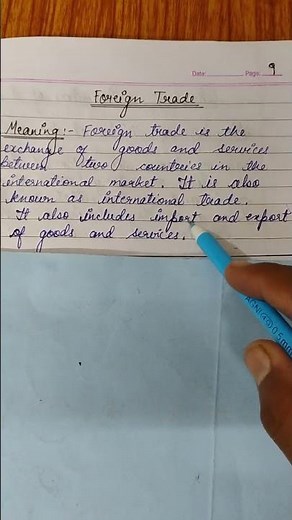 Date: Page: 9
Foreign Trade
Meaning :- Foreign trade is the
exchange of goods and services
between two countries in the
international market. It is also
known as international trade.
It also includes import and export
of goods and services.